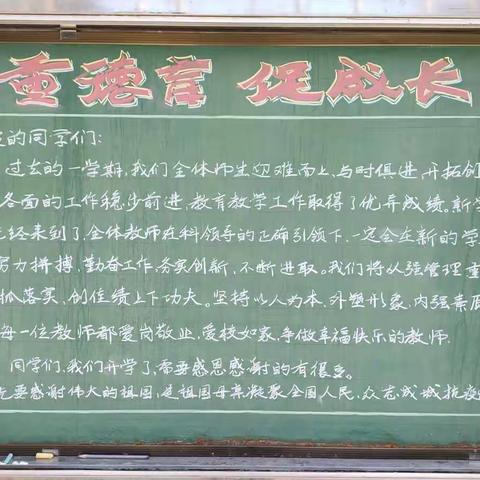 重德育 促成长
的同学们:
过去的一学期,我们全体师生迎难而上,与时俱进,开拓创
各面的工作稳步前进,教育教学工作取得了优异成绩。新学
已经来到了,全体教师在科领导的正确引领下,一定会在新的学
努力拼搏,勤奋工作,务实创新,不断进取。我们将从强管理重
抓落实,创佳绩上下功夫。坚持以人为本,外塑形象,内强素质
每一位教师都爱岗敬业,爱校如家,争做幸福快乐的教师.
同学们,我们开学了,需要感恩感谢的有很多。
先要感谢伟大的祖国,是祖国母亲凝聚全国人民,众志成城抗疫